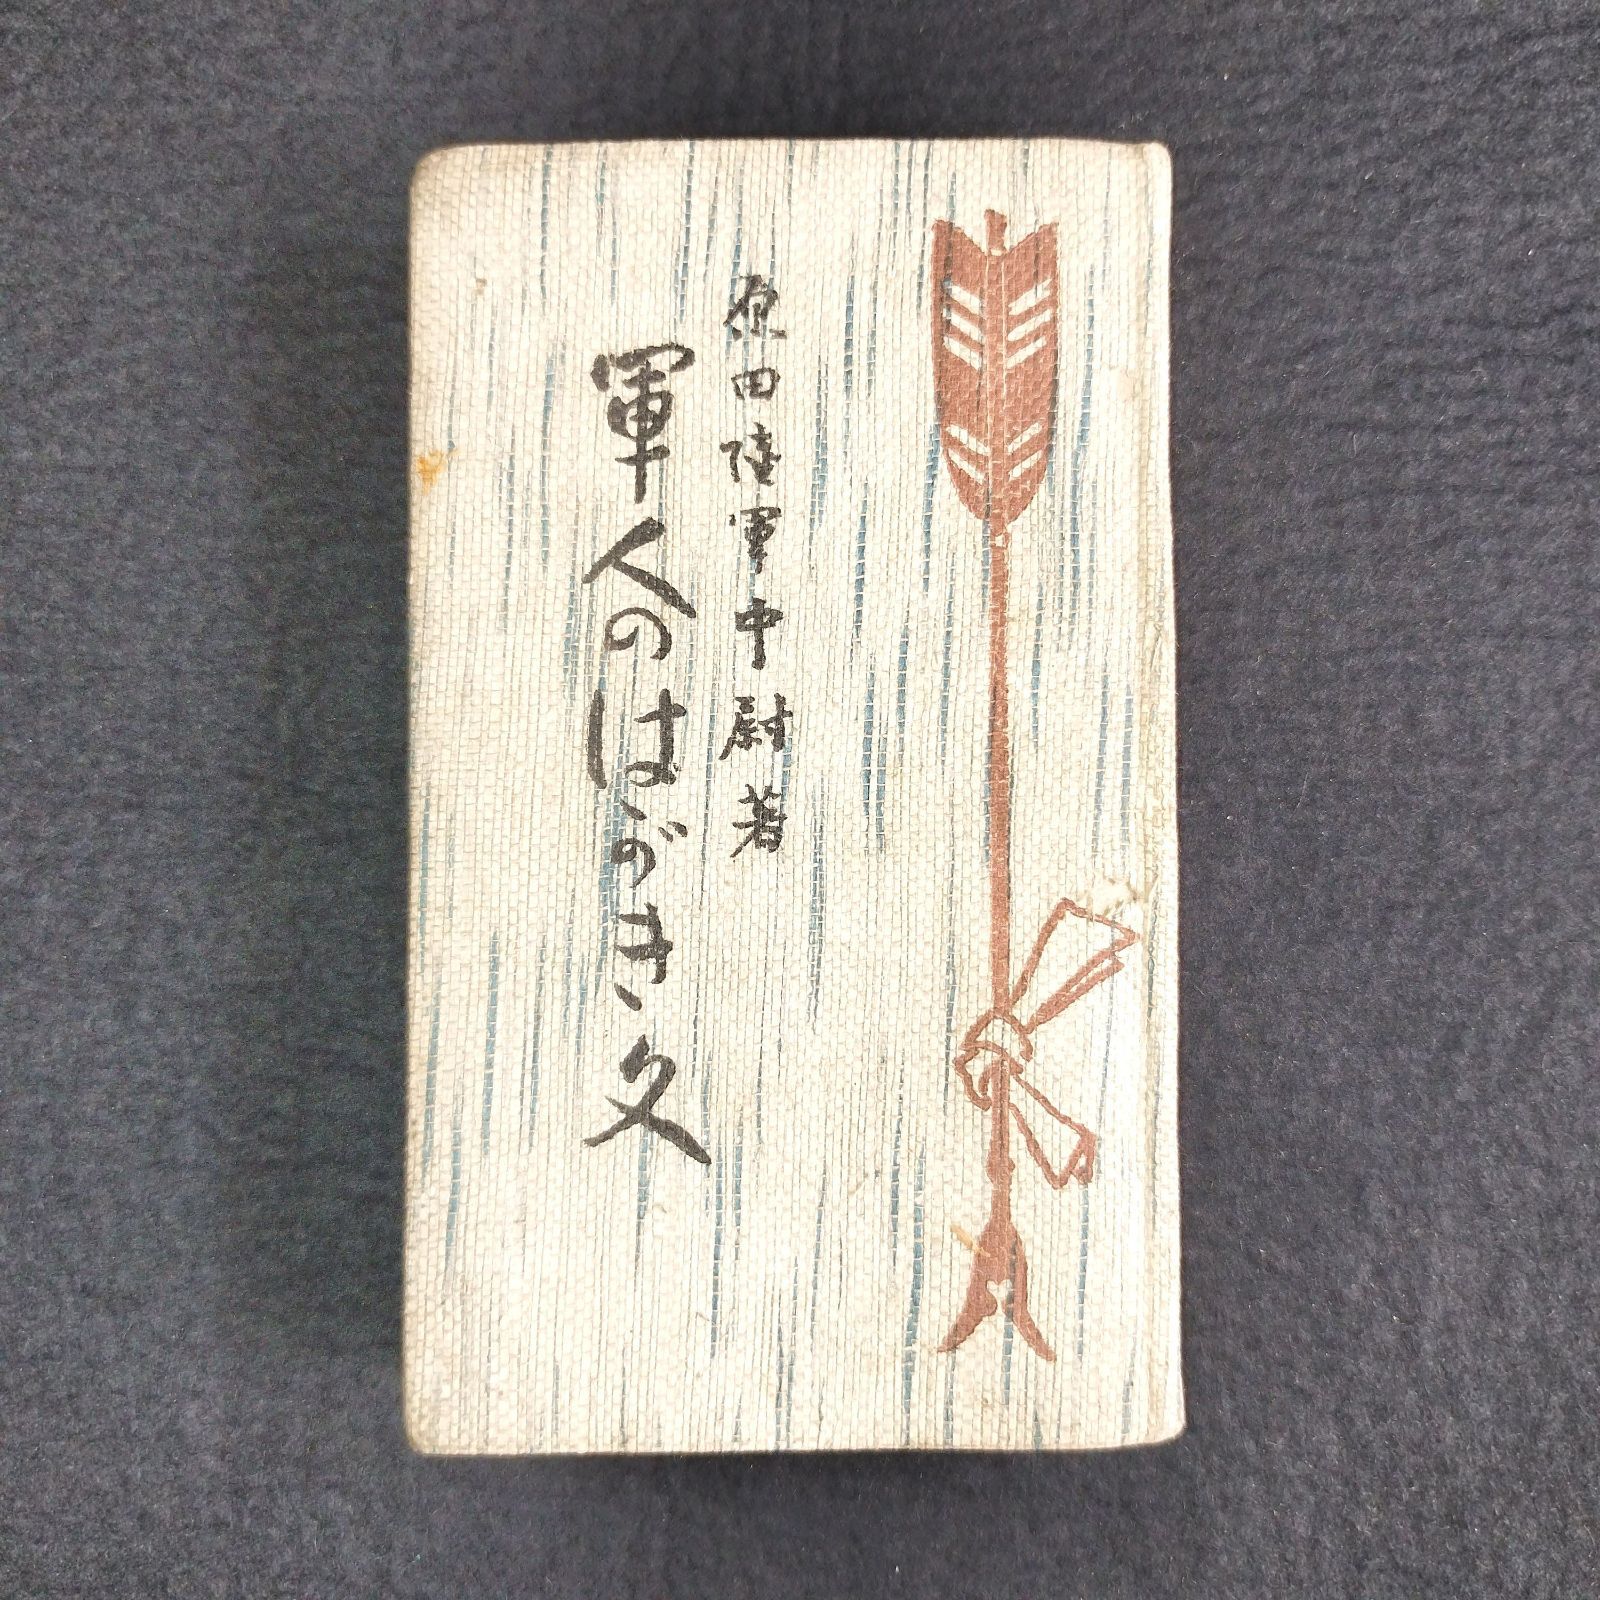 原田陸軍中尉著
軍人のはがき文